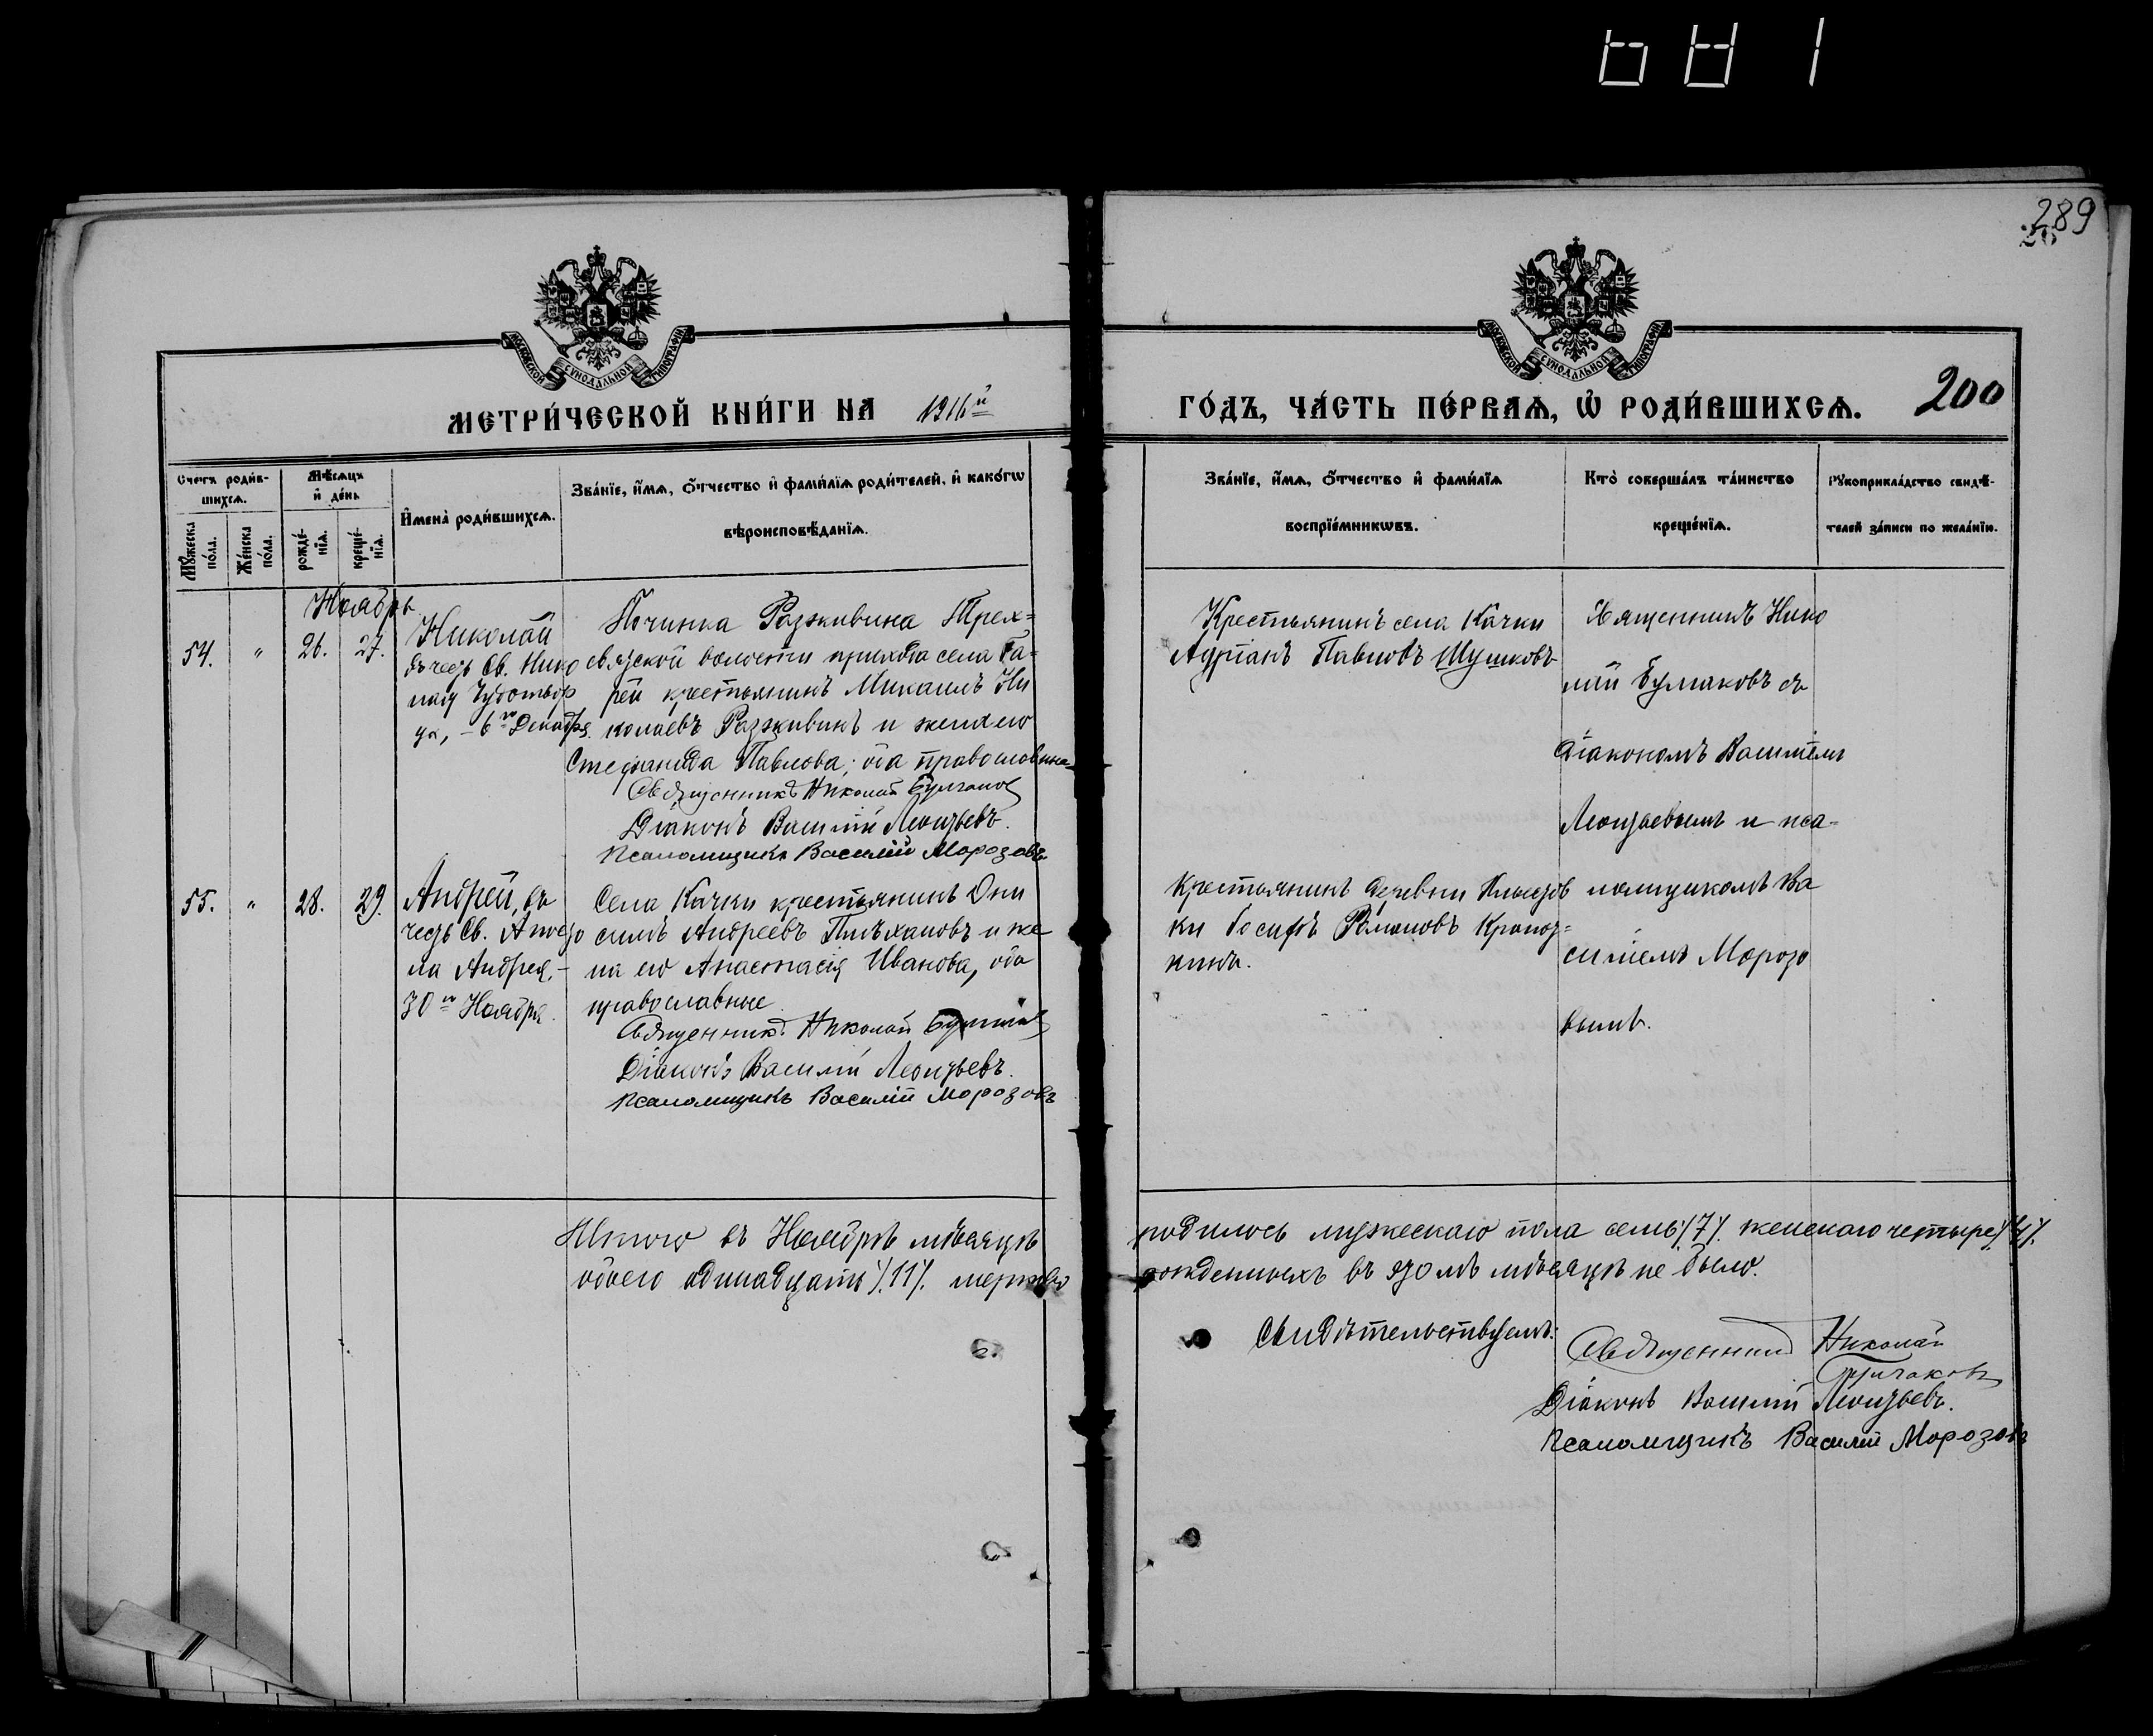 681
289
26
МОСКОВСКОЙ СѴНОДАЛЬНОЙ ТИПОГРАФІИ
МОСКОВСКОЙ СѴНОДАЛЬНОЙ ТИПОГРАФІИ
МЕТРИ́ЧЕСКОЙ КНИ́ГИ НА 1916й
ГО́ДЪ, ЧА́СТЬ ПЕ́РВАѦ, Ѡ҆ РОДИ́ВШИХСѦ. 200
Счетъ роди́в-
шихсѧ.
Мꙋ́жеска по́ла.
Же́нска по́ла.
Мѣ́сѧцъ
и҆ де́нь
рожде́-
нїѧ.
креще́-
нїѧ.
И҆мена̀ роди́вшихсѧ.
Зва́нїе, и҆́мѧ, ѻ҆́тчество и҆ фами́лїѧ роди́телей, и҆ како́гѡ
вѣроисповѣ́данїѧ.
Зва́нїе, и҆́мѧ, ѻ҆́тчество и҆ фами́лїѧ
воспрїе́мникѡвъ.
Кто̀ соверша́лъ та́инство
креще́нїѧ.
Рꙋкоприкла́дство свидѣ́-
телей за́писи по жела́нїю.
Ноябрь
54. " 26. 27.
Николай
въ честь Св. Нико
лая Чудотвор
ца, - 6го Декабря.
Починка Разживина Трех-
святской волости прихода села Га-
рей крестьянинъ Михаилъ Ни
колаевъ Разживинъ и жена его
Стефанида Павлова; оба православные
Священникъ Николай Булгаков
Діаконъ Василій Леонтьевъ.
Псаломщикъ Василій Морозовъ
Крестьянинъ села Качки
Адріанъ Павловъ Шушковъ
Священникъ Нико
лай Булгаковъ съ
діакономъ Василіемъ
Леонтьевымъ и пса-
ломщикомъ Ва
силіемъ Морозо
вымъ.
55. " 28. 29.
Андрей, въ
честь Св. Апосто
ла Андрея, -
30го Ноября.
Села Качки крестьянинъ Они
симъ Андреевъ Плѣхановъ и же
на его Анастасія Иванова, оба
православные
Священникъ Николай Булгаков
Діаконъ Василій Леонтьевъ.
Псаломщикъ Василій Морозовъ
Крестьянинъ деревни
ки Іосифъ Романовъ
Итого въ Ноябрѣ мѣсяцѣ
родилось мужескаго пола семь /.7/. женскаго четыре /.4/.
обоего одинадцать /.11/. мертво
рожденныхъ въ этомъ мѣсяцѣ не было.
Свидѣтельствуемъ:
Священник Николай
Булгаковъ
Діаконъ Василій Леонтьевъ.
Псаломщикъ Василій Морозовъ